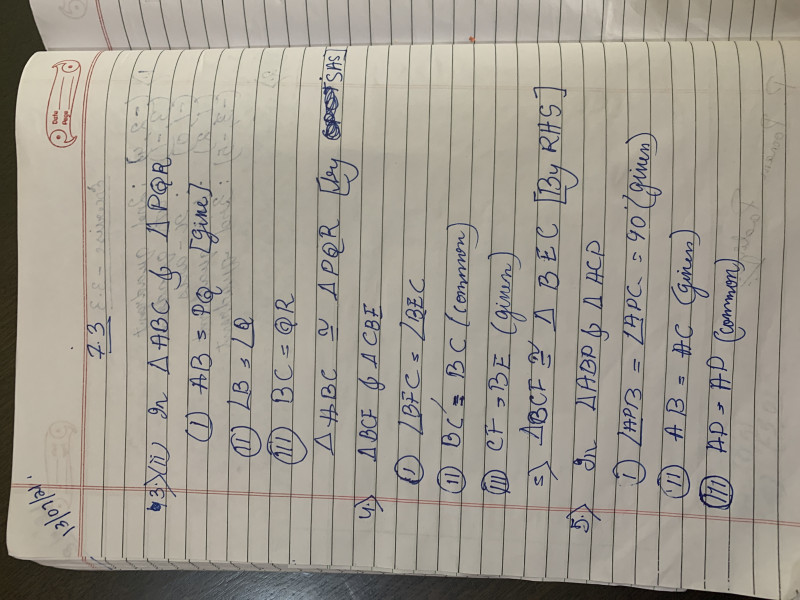 13/07/21
Date
Page
7.3
3.> (ii) In Δ ABC & Δ PQR
(I) AB = PQ [give]
(II) ∠B = ∠Q
(III) BC = QR
Δ ABC ≅ Δ PQR [by SAS]
4.> Δ BCF & Δ CBE
(I) ∠BFC = ∠BEC
(II) BC = BC (common)
(III) CF = BE (given)
=> Δ BCF ≅ Δ BEC [By RHS]
5.> In Δ ABP & Δ ACP
(i) ∠APB = ∠APC = 90° (given)
(II) AB = AC (given)
(III) AP = AP (common)